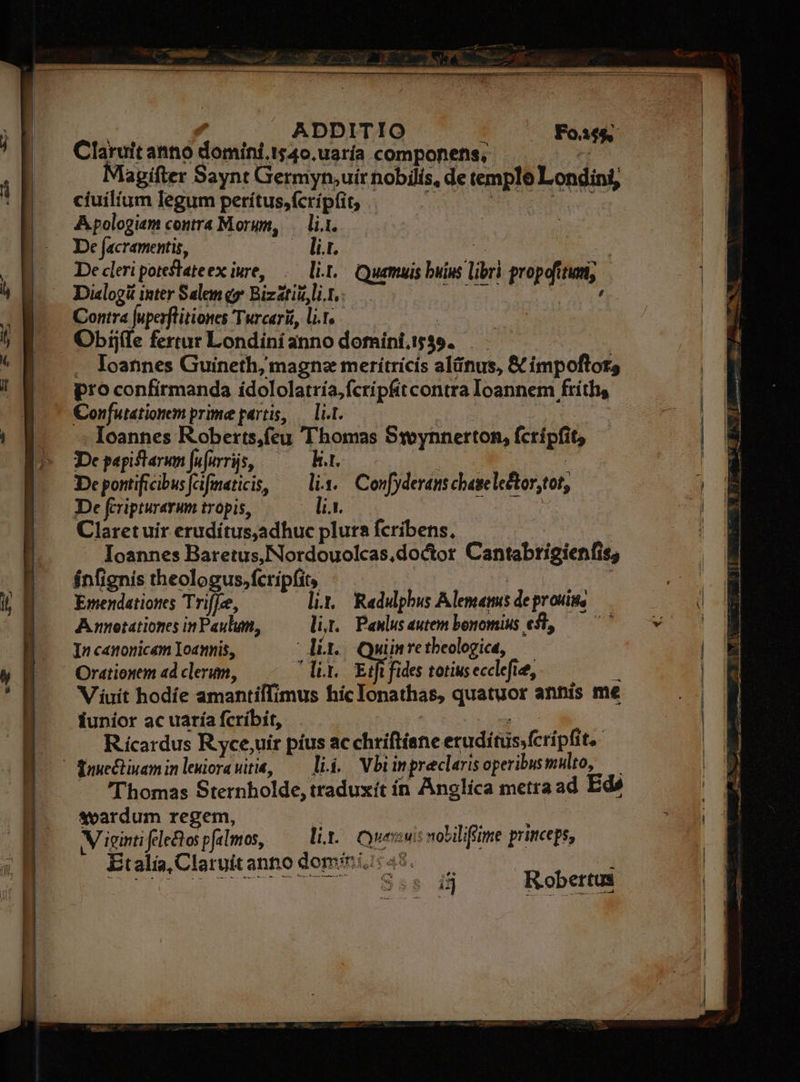 ADDITIO
Claruit anno domini.1540.uaría componens,
Magiſter Saynt Germyn,uir nobilís, de templo Londini,
ciuilíum legum perítus,ſcripſit,
Apologiam contra Morum, li.1.
De ſacramentis, li.1.
De cleri poteſtate ex iure, li.1. Quamuis huius libri propoſitum,
Dialogū inter Salem & Bizātiū,li.1.
Contra ſuperſtitiones Turcarū, li.1.
Obijſſe fertur Londini anno domini.1539.
Ioannes Guineth, magnæ merítrícís alūnus, & impoſtor,
pro confirmanda idololatría,ſcripſit contra Ioannem frith,
Confutationem prime partis, li.1.
Ioannes Roberts,ſeu Thomas Swynnerton, ſcripſit,
De papiſtarum ſuſurrijs, li.1.
De pontificibus ſciſmaticis, li.1. Conſyderans chaſe lector,tot,
De ſcripturarum tropis, li.1.
Claret uir erudítus,adhuc plura ſcribens.
Ioannes Baretus,Nordouolcas,doctor Cantabrígíenſis,
ínſignís theologus,ſcripſit,
Emendationes Triſſæ, li.1. Radulphus Alemanus de prouin,
Annotationes in Paulum, li.1. Paulus autem benomius eſt,
In canonicam Ioannis, li.1. Qui in re theologica,
Orationem ad clerum, li.1. Etſi fides totius eccleſiæ,
Viuit hodíe amantíſſimus híc Ionathas, quatuor annis me
iuníor ac uaría ſcribít,
Rícardus Ryce,uír píus ac chriſtiane erudítus,ſcripſit.
Inuectiuam in leuiora uitia, li.i. Vbi in preclaris operibus multo,
Thomas Sternholde, traduxít ín Anglíca metra ad Ed-
wardum regem,
Viginti ſelectos pſalmos, li.1. Quamuis nobiliſsime princeps,
Et alía,Claruít anno domini.1548.
Sss ij Robertus